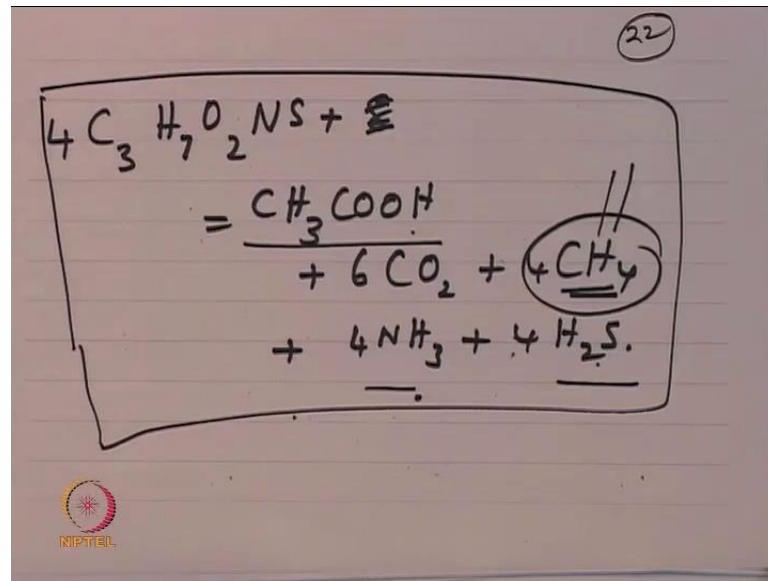 22
4 C3 H7 O2 NS +
= CH3COOH
+ 6 CO2 + 4CH4
+ 4 NH3 + 4 H2S.
NPTEL